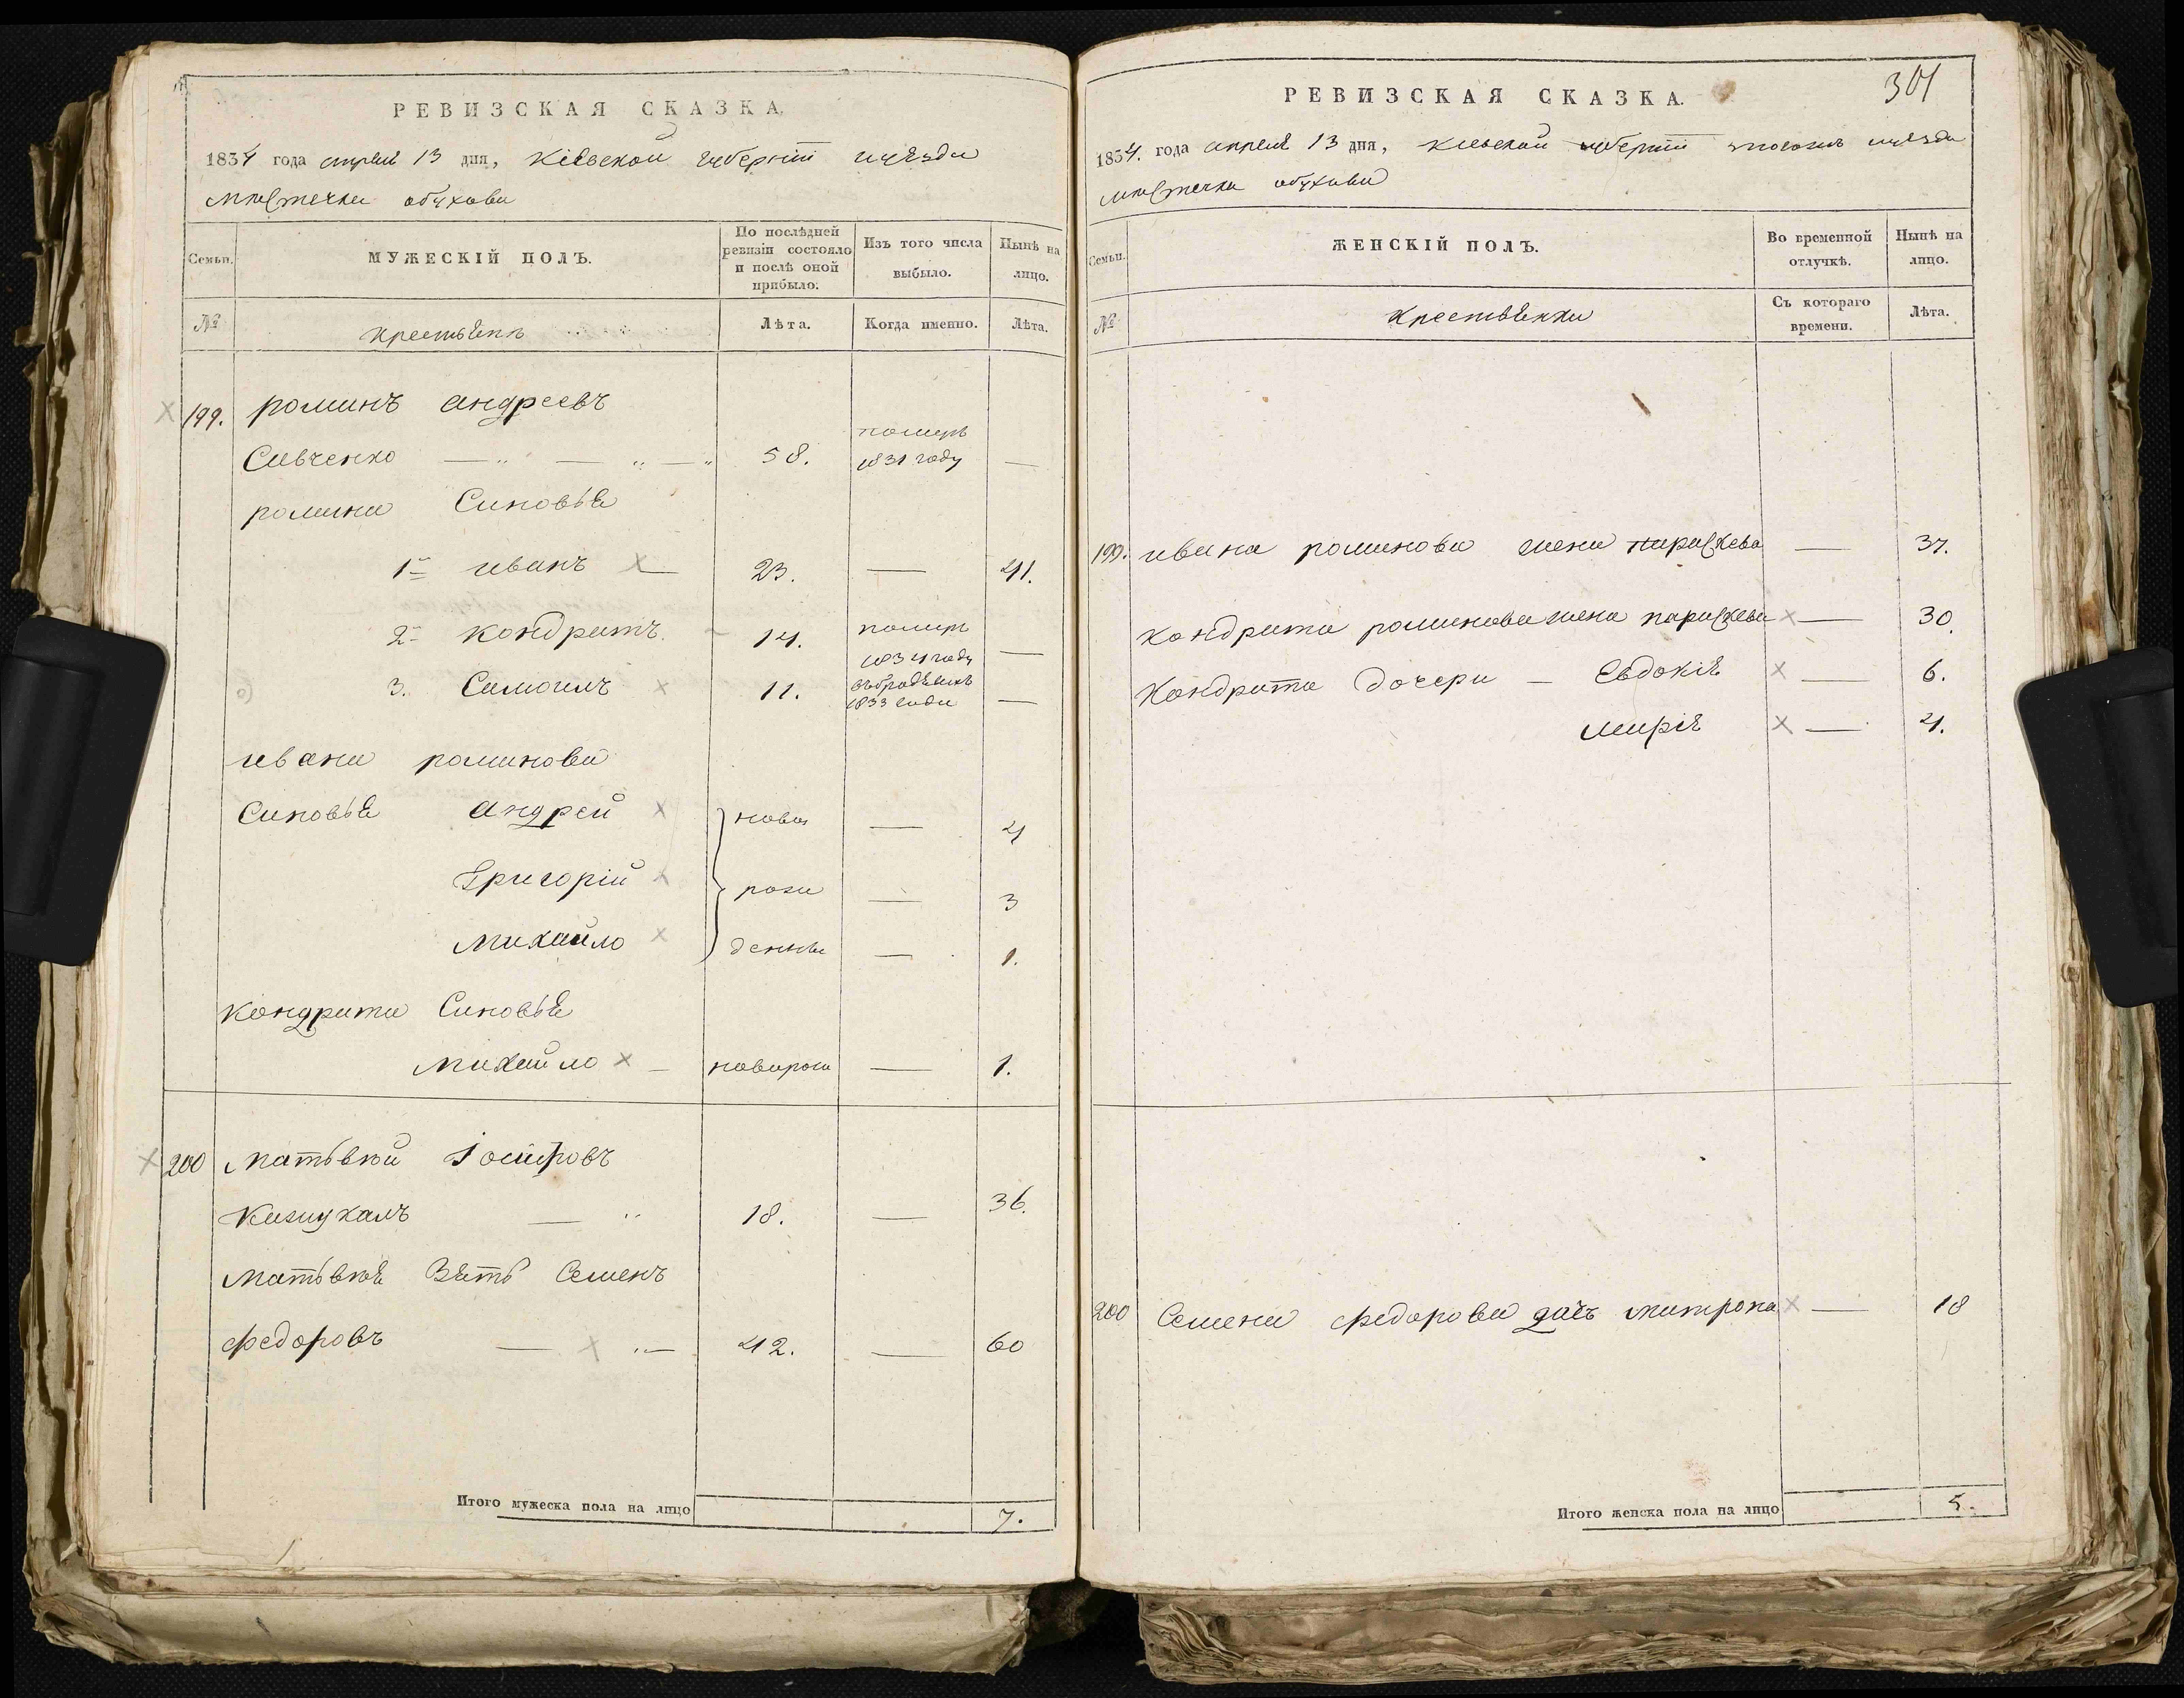 РЕВИЗСКАЯ СКАЗКА.
1834 года апреля 13 дня, Кіевской губерніи и уезда
местечка обухова
Семьи.
МУЖЕСКІЙ ПОЛЪ.
По послѣдней ревизіи состояло и послѣ оной прибыло.
Изъ того числа выбыло.
Нынѣ на лицо.
№
Крестьянъ
Лѣта.
Когда именно.
Лѣта.
199. романъ андреевъ
Савченко 58. померъ 1831 году —
романа Синовья
1й иванъ 23. — 41.
2й кондратъ. 14. померъ 1834 году —
3. Самоилъ 11. 1833 года —
ивана романова
Синовья андрей — 4
Григорій — 3
Михайло — 1.
новорожденные
Кондрата Синовья
Михайло — новорож — 1.
200 Матьвей Іосифовъ
18. — 36.
Матьвея Зять Семенъ
федоровъ 42. — 60
Итого мужеска пола на лицо 7.
РЕВИЗСКАЯ СКАЗКА.
301
1834. года апреля 13 дня, Киевской губерніи уезда
местечка обухова
Семьи.
ЖЕНСКІЙ ПОЛЪ.
Во временной отлучкѣ.
Нынѣ на лицо.
№
Крестьянки
Съ котораго времени.
Лѣта.
199. ивана романова жена параскева — 37.
Кондрата романова жена параскева — 30.
Кондрата дочери — Евдокія — 6.
Марія — 4.
200 Семена федорова дочь — 18
Итого женска пола на лицо 5.